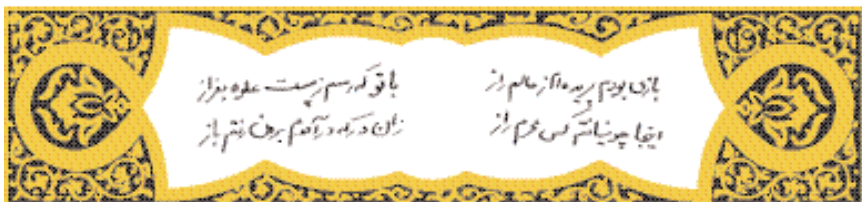 بازی بودم پریده از عالم راز که رسم ز پست بفراز
اینجا چو نیافتم کسی محرم راز زان در که درآمدم برون رفتم باز